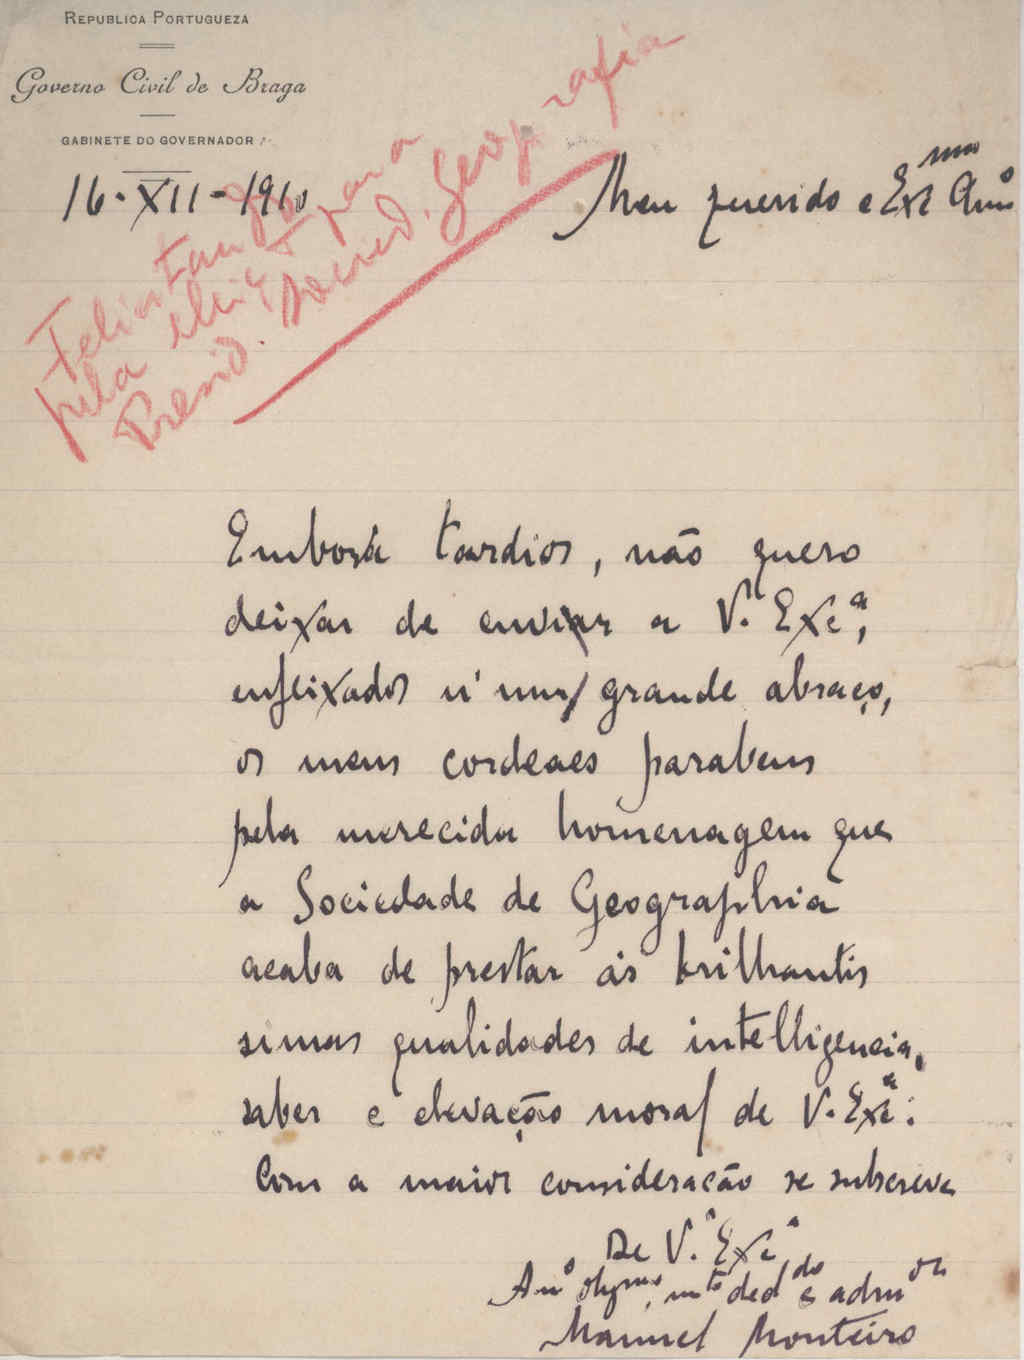 REPUBLICA PORTUGUEZA
Governo Civil de Braga
GABINETE DO GOVERNADOR
16-XII-1910
Meu querido e Exc.mo Am.o
Felicitando-o
pela eleição para
Presid. Socied. Geografia
Embora tardios, não quero
deixar de enviar a V. Exc.a,
enfeixados n'um grande abraço,
os meus cordeaes parabens
pela merecida homenagem que
a Sociedade de Geographia
acaba de prestar ás brilhantis
simas qualidades de intelligencia,
saber e elevação moral de V. Exc.a.
Com a maior consideração se subscreve
De V. Exc.a
Am.o obg.mo, m.to ded.do e adm.or
Manuel Monteiro